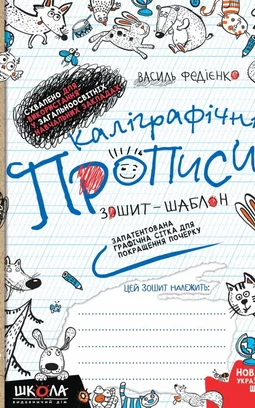 ВАСИЛЬ ФЕДІЄНКО
СХВАЛЕНО ДЛЯ
ВИКОРИСТАННЯ
У ЗАГАЛЬНООСВІТНІХ
НАВЧАЛЬНИХ ЗАКЛАДАХ
каліграфічні
ПРОПИСИ
ЗОШИТ-ШАБЛОН
ЗАПАТЕНТОВАНА
ГРАФІЧНА СІТКА ДЛЯ
ПОКРАЩЕННЯ ПОЧЕРКУ
ЦЕЙ ЗОШИТ НАЛЕЖИТЬ:
ШКОЛА
ВИДАВНИЧИЙ ДІМ
НОВ
УКРАЇ
Ш